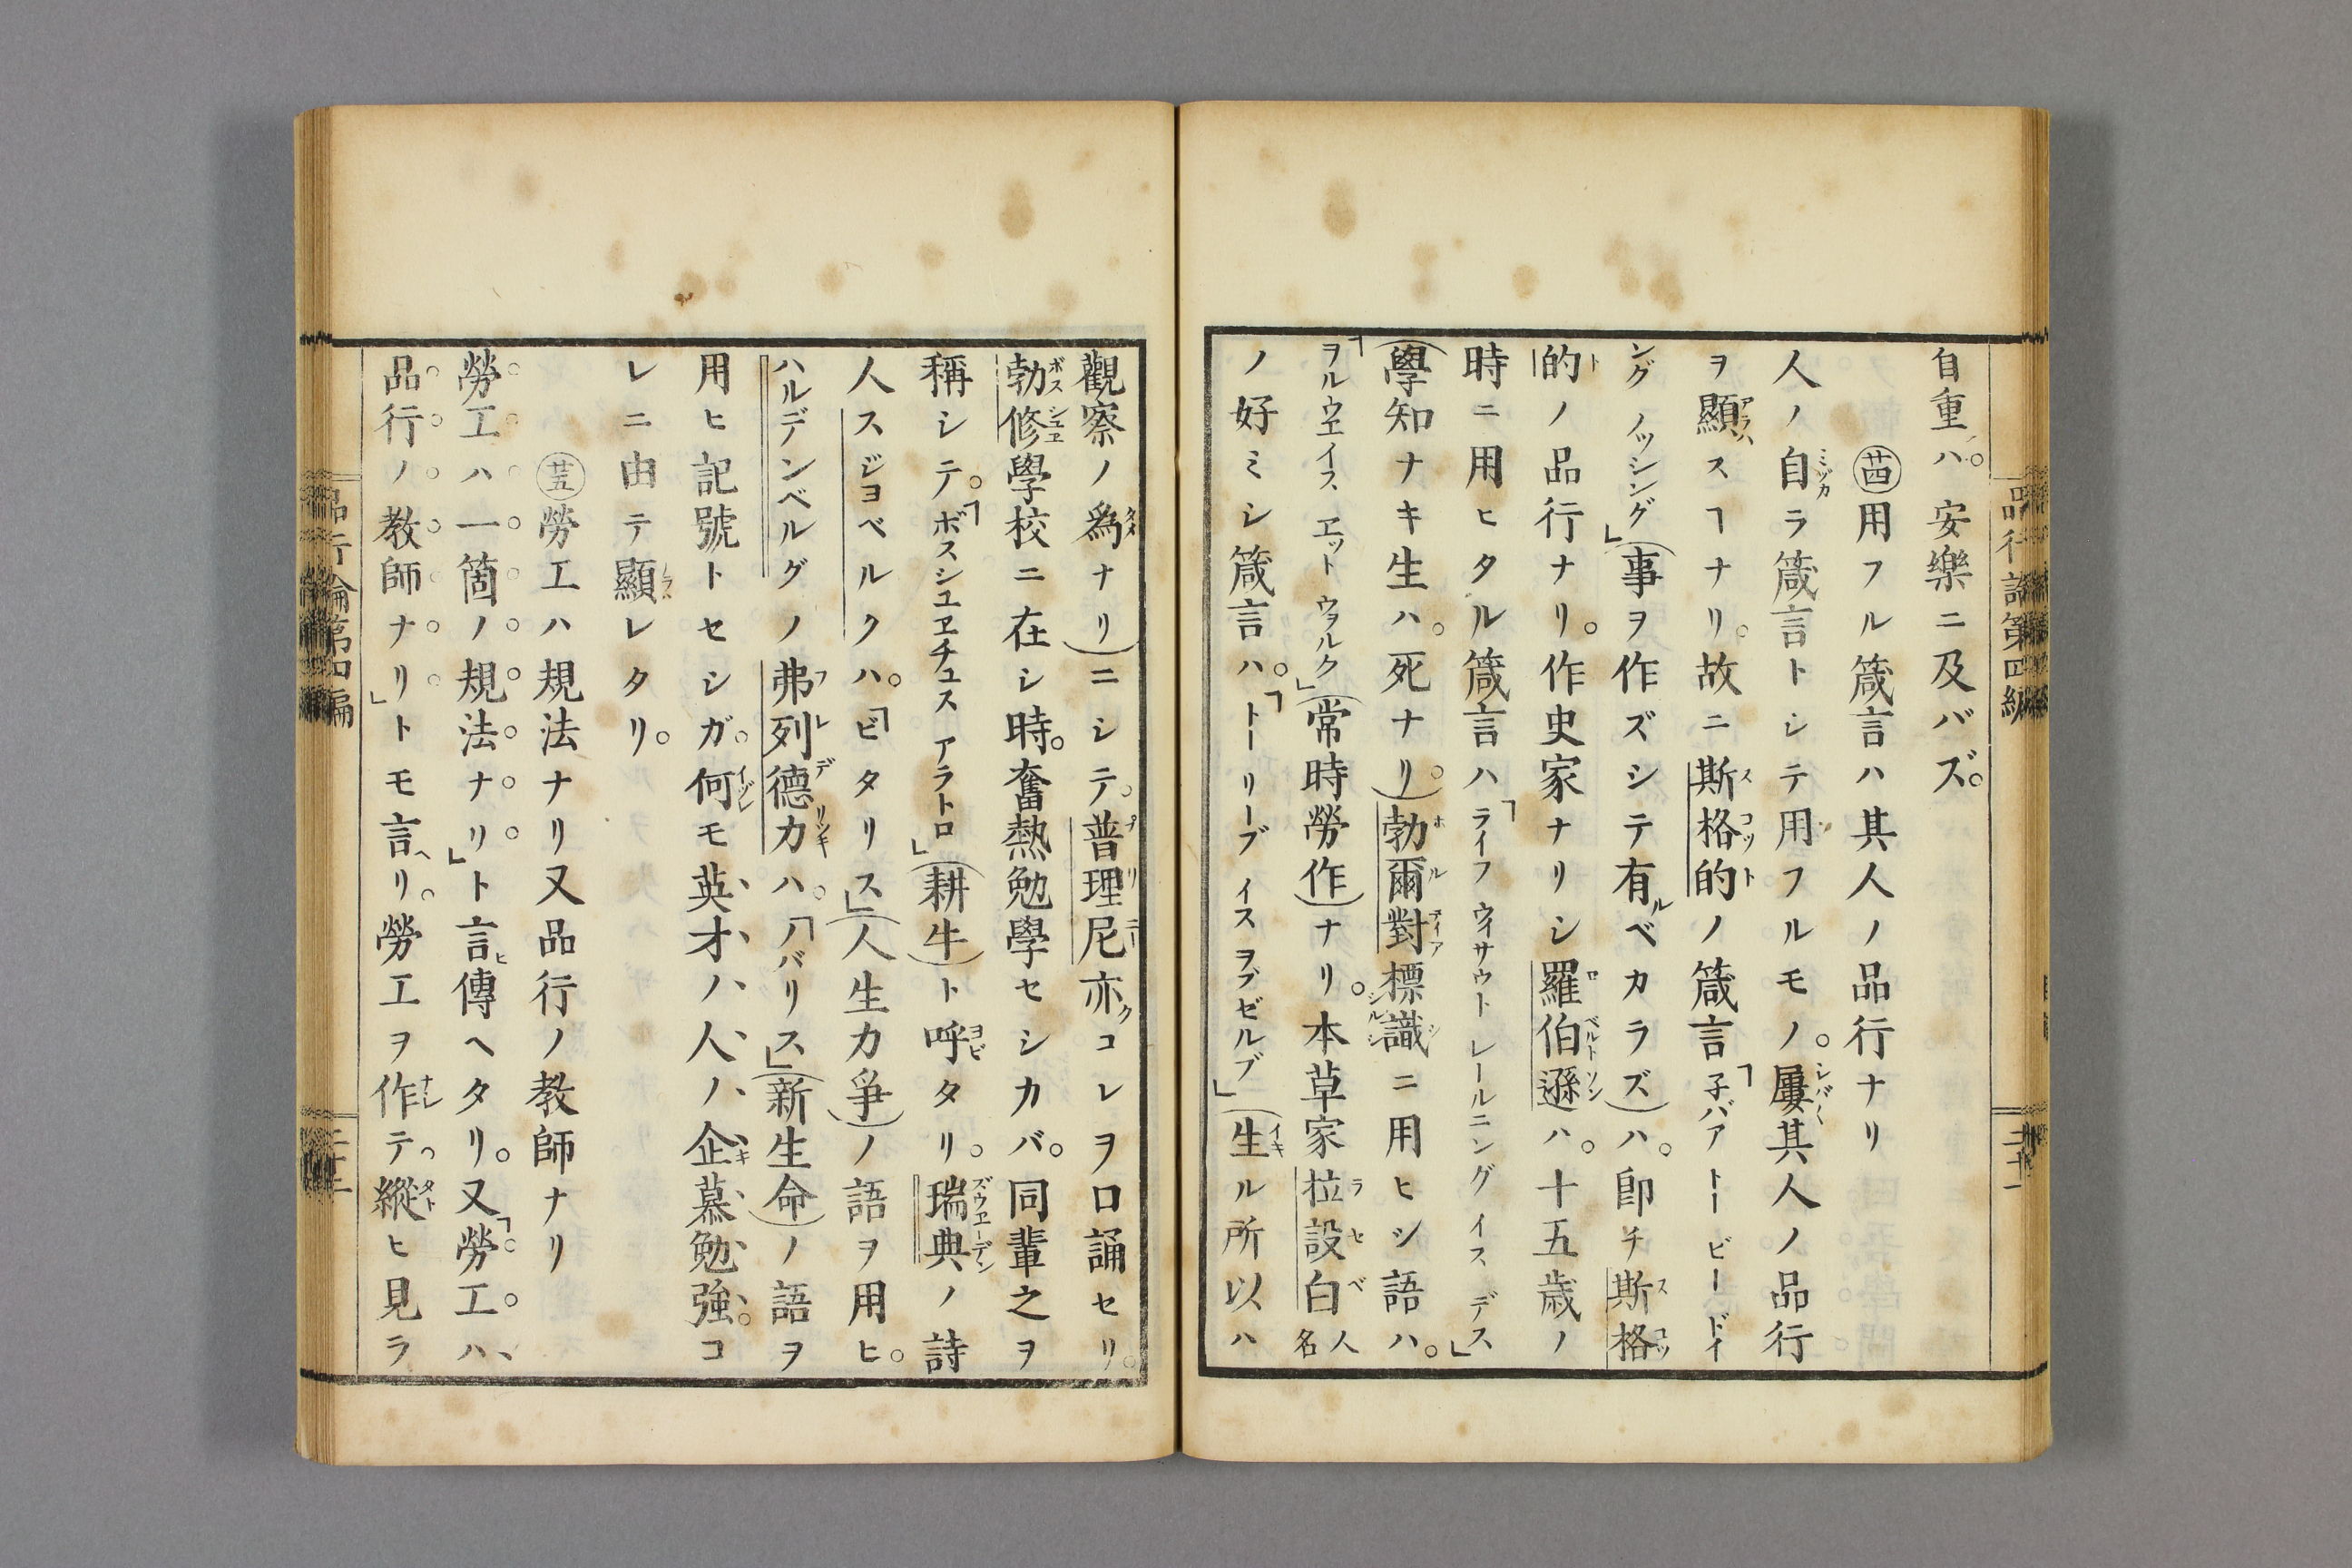 自重ハ。安樂ニ及バズ。
㊁用フル箴言ハ其人ノ品行ナリ
人ノ自ラ箴言トシテ用フルモノ。屢其人ノ品行
ヲ顯スヿナリ。故ニ斯格的ノ箴言「子バア トー ビー ドイ
ング ノッシング」(事ヲ作ズシテ有ベカラズ)ハ。卽チ斯格
的ノ品行ナリ。作史家ナリシ羅伯遜ハ。十五歳ノ
時ニ用ヒタル箴言ハ「ライフ ウィサウト レールニング イス デス」
(學知ナキ生ハ。死ナリ。)勃爾對標識ニ用ヒシ語ハ。
「ヲルウェイス エット ウォルク」(常時勞作)ナリ。本草家拉設白人名
ノ好ミシ箴言ハ。「トー リーブ イス ヲブゼルブ」(生ル所以ハ
觀察ノ爲ナリ)ニシテ。普理尼亦コレヲ口誦セリ。
勃修學校ニ在シ時。奮熱勉學セシカバ。同輩之ヲ
稱シテ。「ボスシユヱチュス アラトロ」(耕牛)ト呼タリ。瑞典ノ詩
人スジヨベルクハ。「ビタリス」(人生力爭)ノ語ヲ用ヒ。
ハルデンベルグノ弗列德力ハ。「ノバリス」(新生命)ノ語ヲ
用ヒ記號トセシガ。何モ英才ノ人ノ企慕勉強。コ
レニ由テ顯レタリ。
勞工ハ規法ナリ又品行ノ教師ナリ
勞工ハ一箇ノ規法ナリ」ト言傳ヘタリ。又「勞工ハ、
品行ノ教師ナリ」トモ言ヘリ。勞工ヲ作テ、縱ヒ見ラ
品行論第四編
品行論第四編